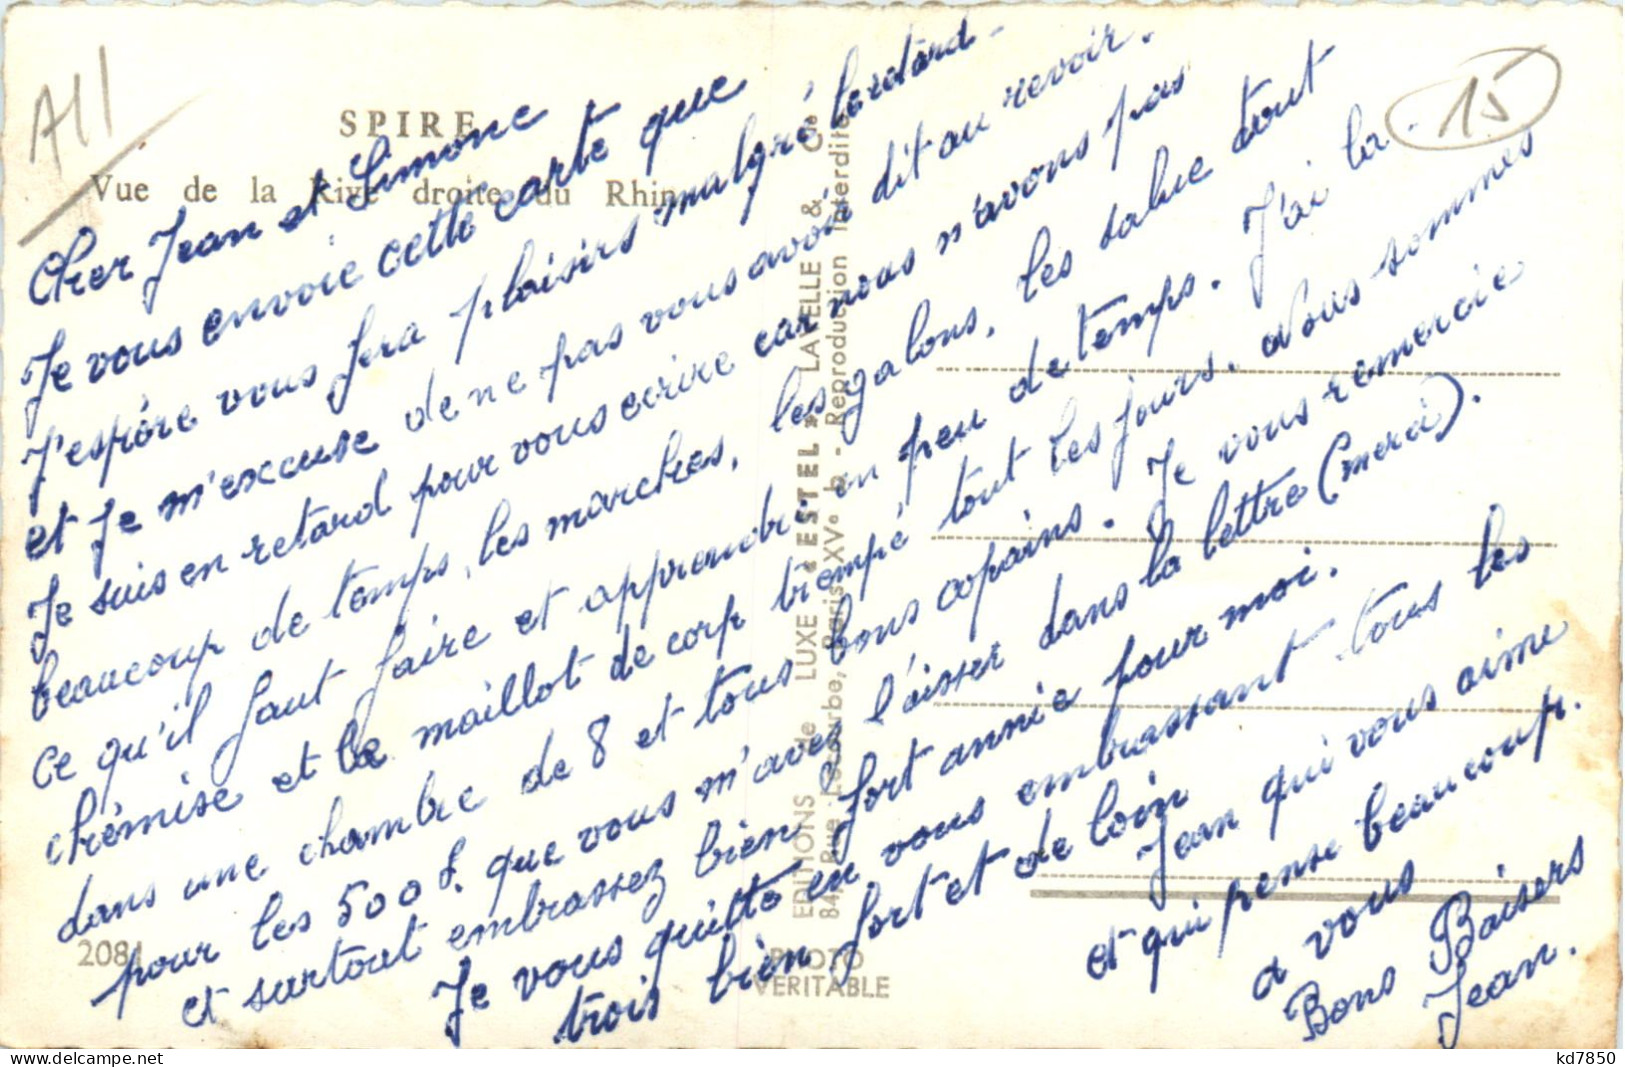 A11
15
SPIRE
Vue de la Rive droite du Rhin
Cher Jean et Simone
Je vous envoie cette carte que
J'espére vous fera plaisirs malgré le retard -
et je m'excuse de ne pas vous avoir dit au revoir.
Je suis en retard pour vous ecrire car nous n'avons pas
beaucoup de temps, les marches, les galons, les salue tout
ce qu'il faut faire et apprendre en peu de temps. J'ai la
chémise et le maillot de corp trempé tout les jours. Nous sommes
dans une chambre de 8 et tous bons copains. Je vous remercie
pour les 500 f. que vous m'avez l'aisser dans la lettre (merci).
et surtout embrassez bien fort annie pour moi.
Je vous quitte en vous embrassant tous les
trois bien fort et de loin
Jean qui vous aime
et qui pense beaucoup
a vous
Bons Baisers
Jean.
2084
EDITIONS de LUXE "ESTEL" LAVELLE & Cie
84, Rue Lecourbe, Paris XVe - Reproduction Interdite
PHOTO
VERITABLE
kd7850